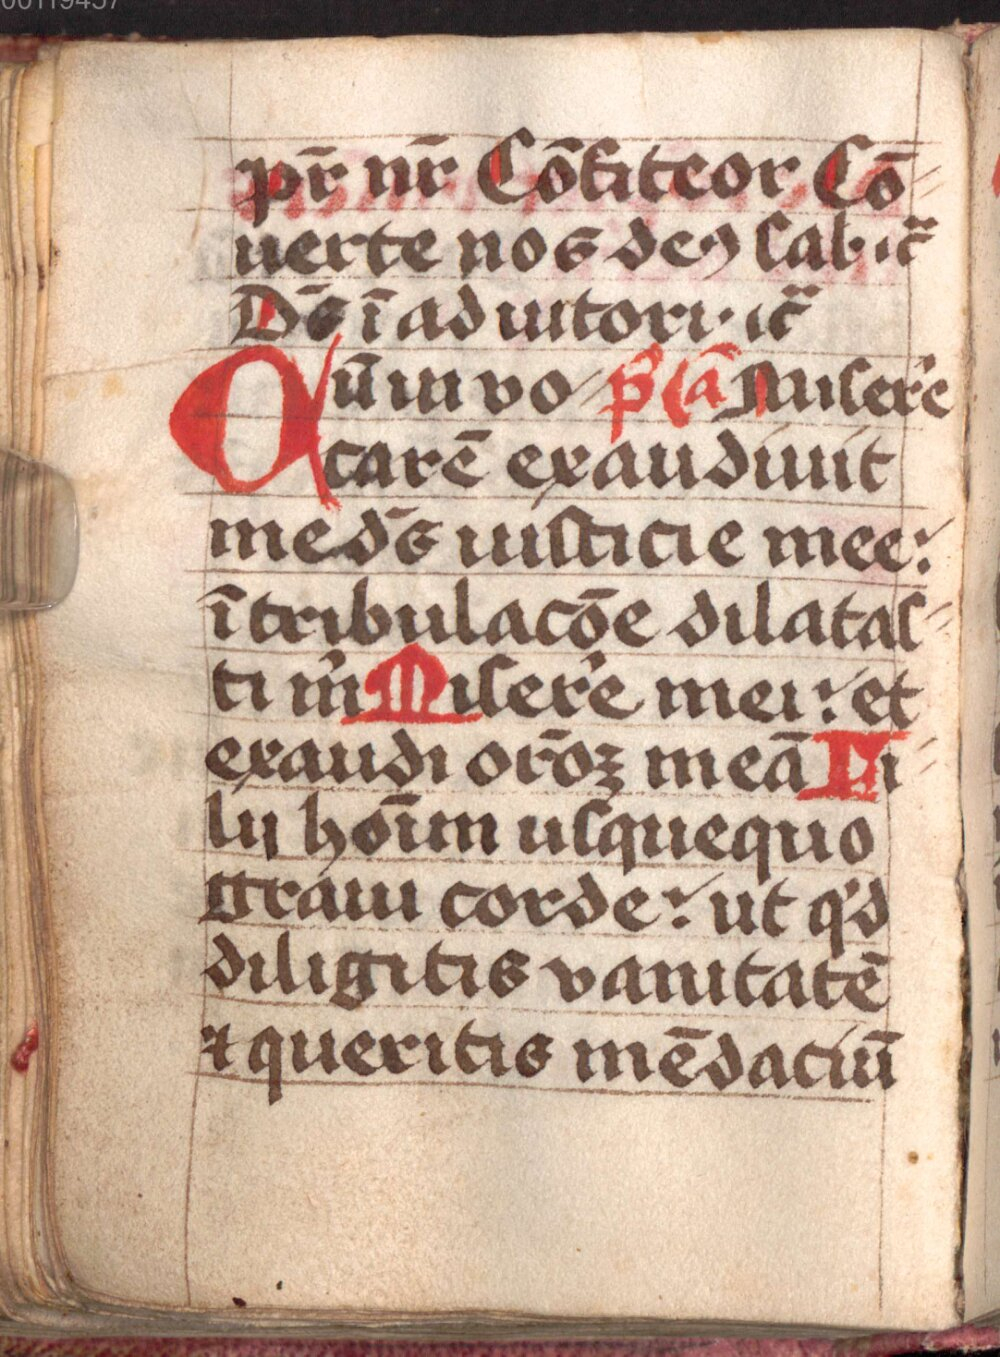 pr̄ nr̄ Cōfiteor Cō
uerte nos deꝰ sal· ꝛc̄
Dē ī adiutori· ꝛc̄
Cū inuo p̄s (ā) Miserˀe
carē exaudiuit
me dš iusticie mee:
ī tribulacōe dilatas
ti m̄ Miserˀe mei: et
exaudi or̄oꝫ meā Fi
lij hōīm usquequo
graui corde: ut qˀd
diligitis vanitatē
⁊ queritis mēdaciū